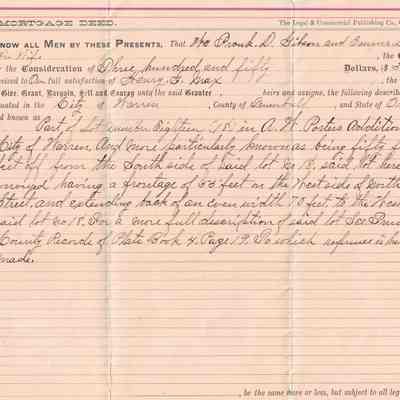 MORTGAGE DEED. The Legal & Commercial Publishing Co.,
NOW ALL MEN BY THESE PRESENTS, That We Frank D. Gibson and
his Wife , the
the Consideration of Three hundred and fifty Dollars, $
received to Our full satisfaction of Henry G.
Give, Grant, Bargain, Sell and Convey unto the said Grantee heirs and assigns, the following described
situated in the City of Warren , County of Trumbull , and State of
and known as
Part of Lot number Eighteen (18) in A. W. Porters Addition
City of Warren, And more particularly known as being fifty
feet off from the South side of said lot no 18. said lot here
conveyed having a frontage of 50 feet on the West side of
Street, and extending back of an even width 70 feet to the West
said lot no 18. For a more full description of said lot See
County Records of Plats Book 4. Page 19. To which reference is
made.
, be the same more or less, but subject to all leg